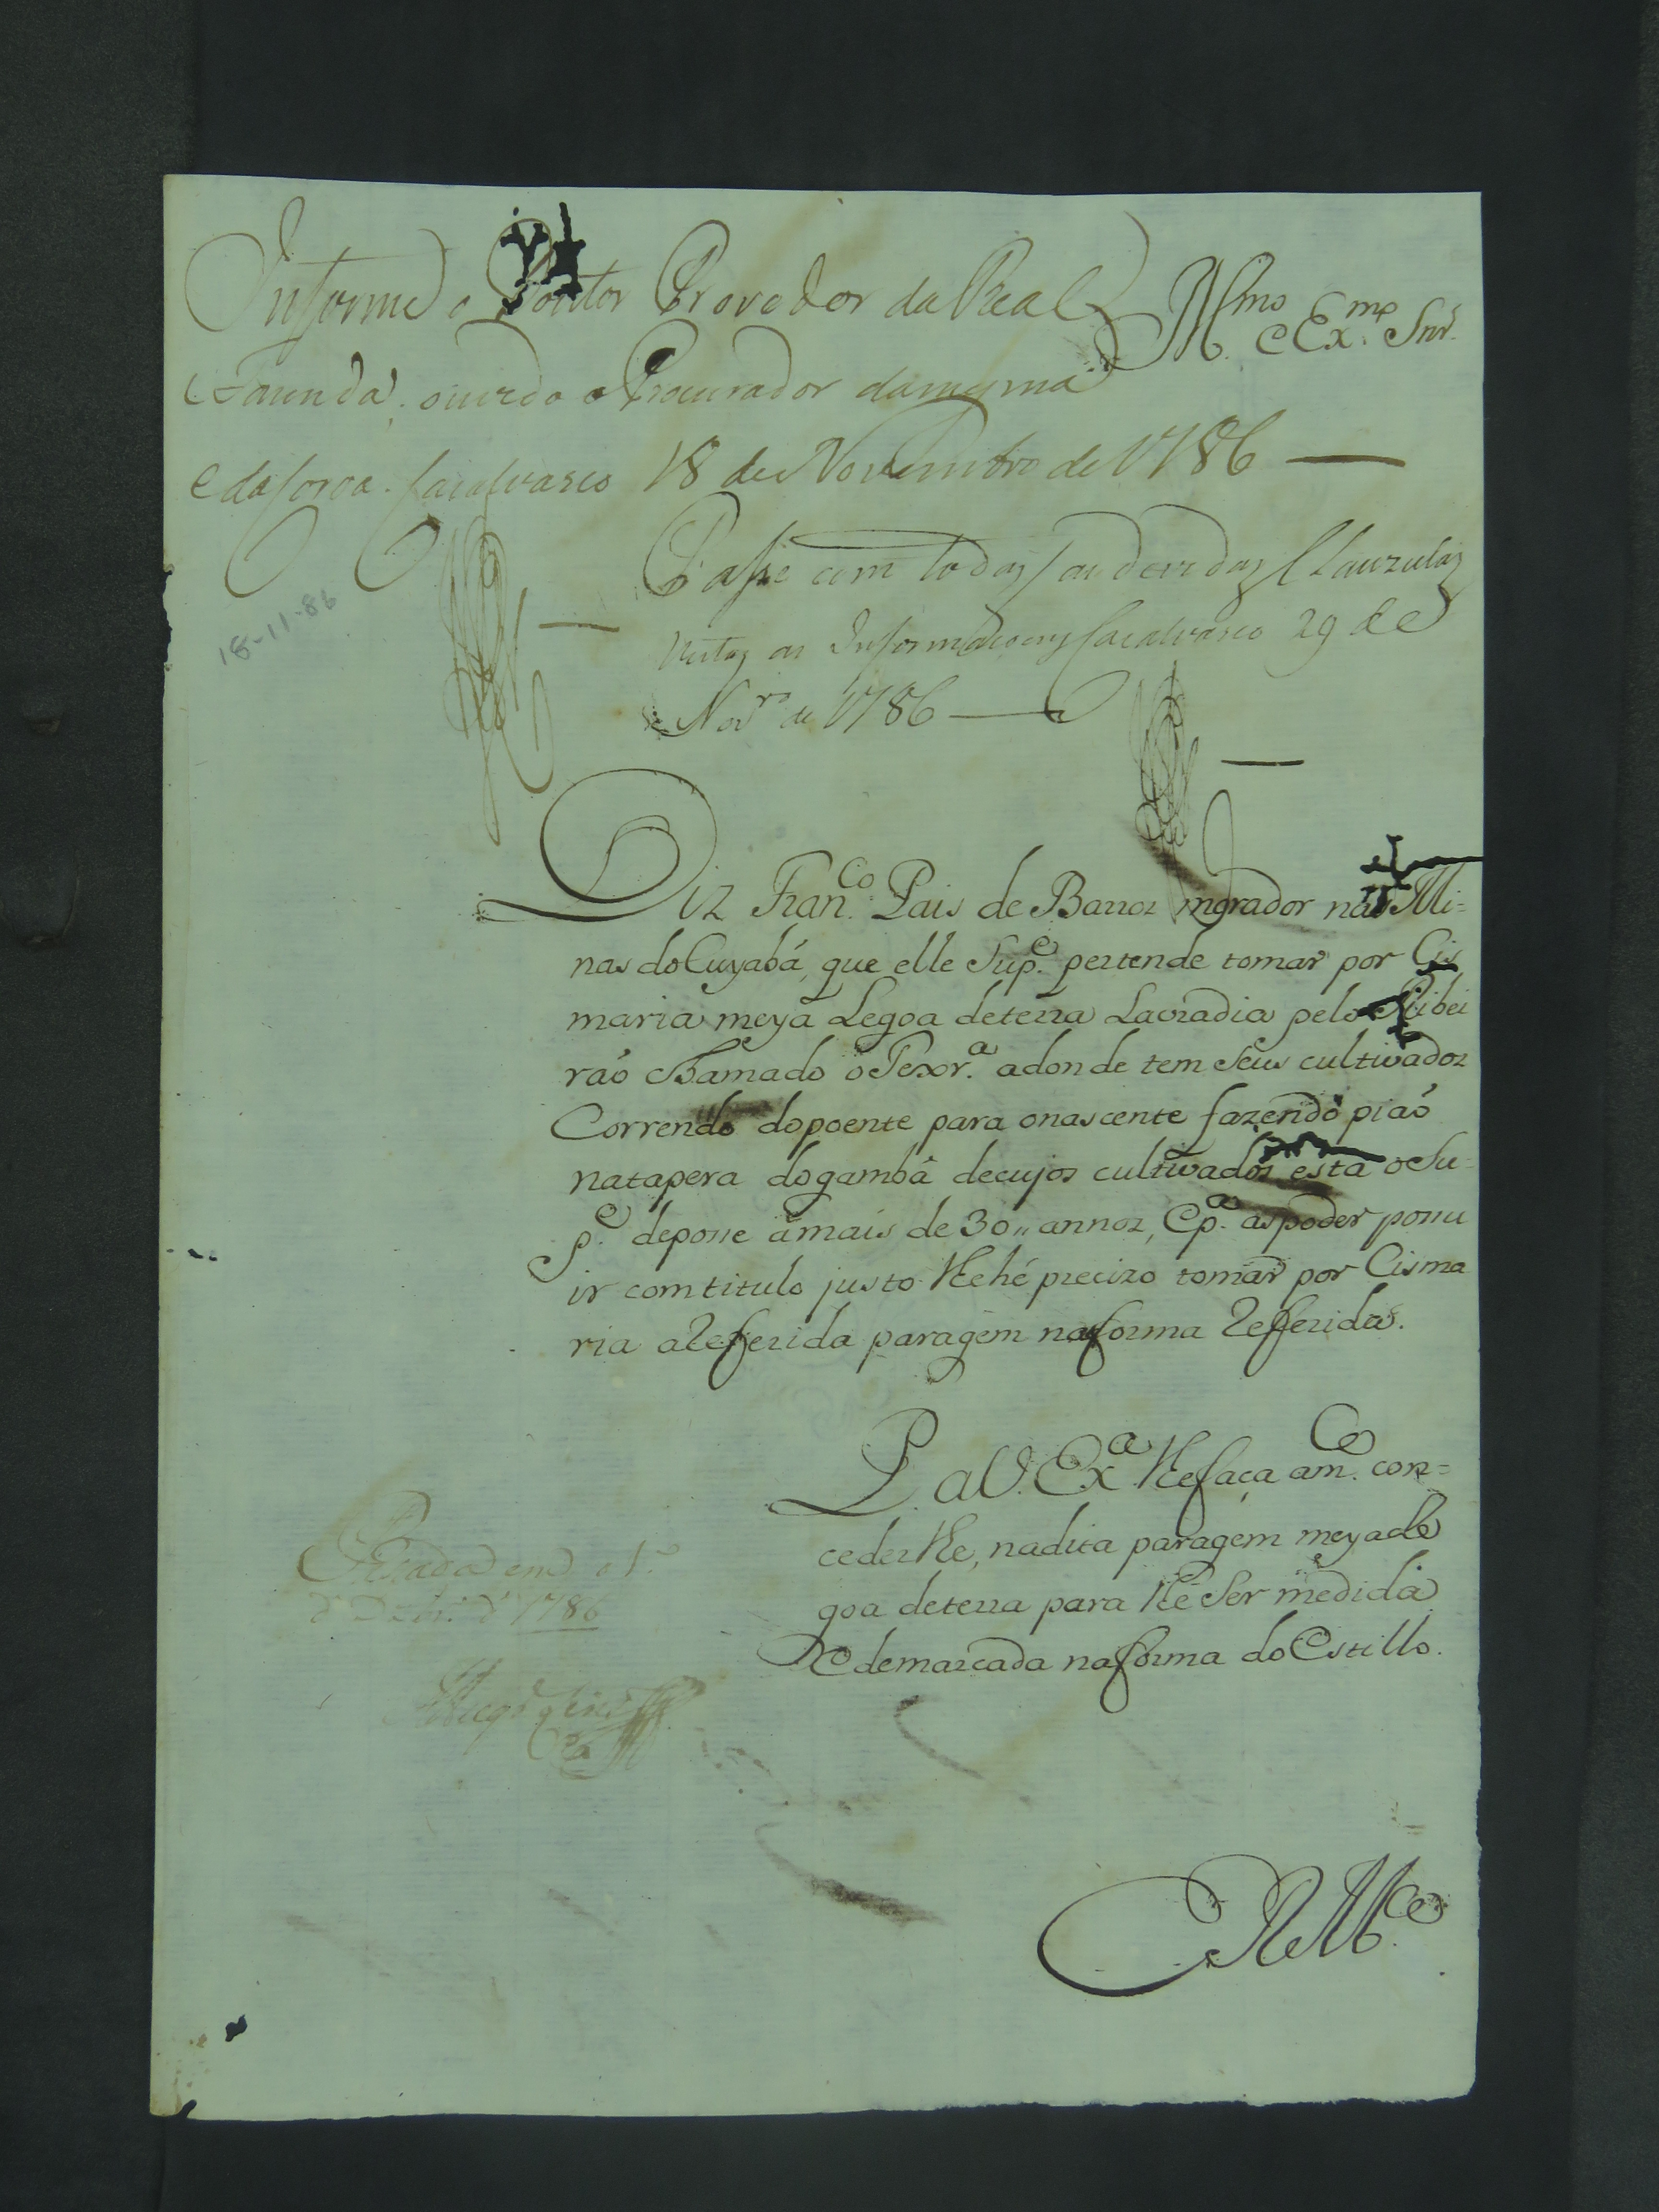 Informe o Doutor Provedor da Real
Illmo. e Exmo. Snr.
Fazenda, ouvindo o Procurador damesma
e da Coroa. Cazalvasco 18 de Novembro de 1786
Passe com todas as devidas Clauzulas
vistas as Informaçoens Cazalvasco 29 de
Novro. de 1786
18-11-86
Diz Franco. Pais de Barros morador nas Mi=
nas do Cuyabá, que elle Supe. pertende tomar por Cis
maria meya Legoa deterra Lavradia pelo Ribei
raõ chamado o Pexra. adonde tem seus cultivados
Correndo dopoente para onascente fazendo piaõ
natapera dogambá decujos cultivados está o Su
pe. deposse ámais de 30,, annos, e pa. as poder possu
ir comtitulo justo lhe hé precizo tomar por Cisma
ria a Refferida paragem naforma Refferida.
P. a V. Exa. lhefaça a mce. con=
cederlhe, nadita paragem meya le
goa deterra para lhe Ser medida
e demarcada naforma do Estillo.
Passada em o 1o.
d' Dezbro. d' 1786
E R Mce.